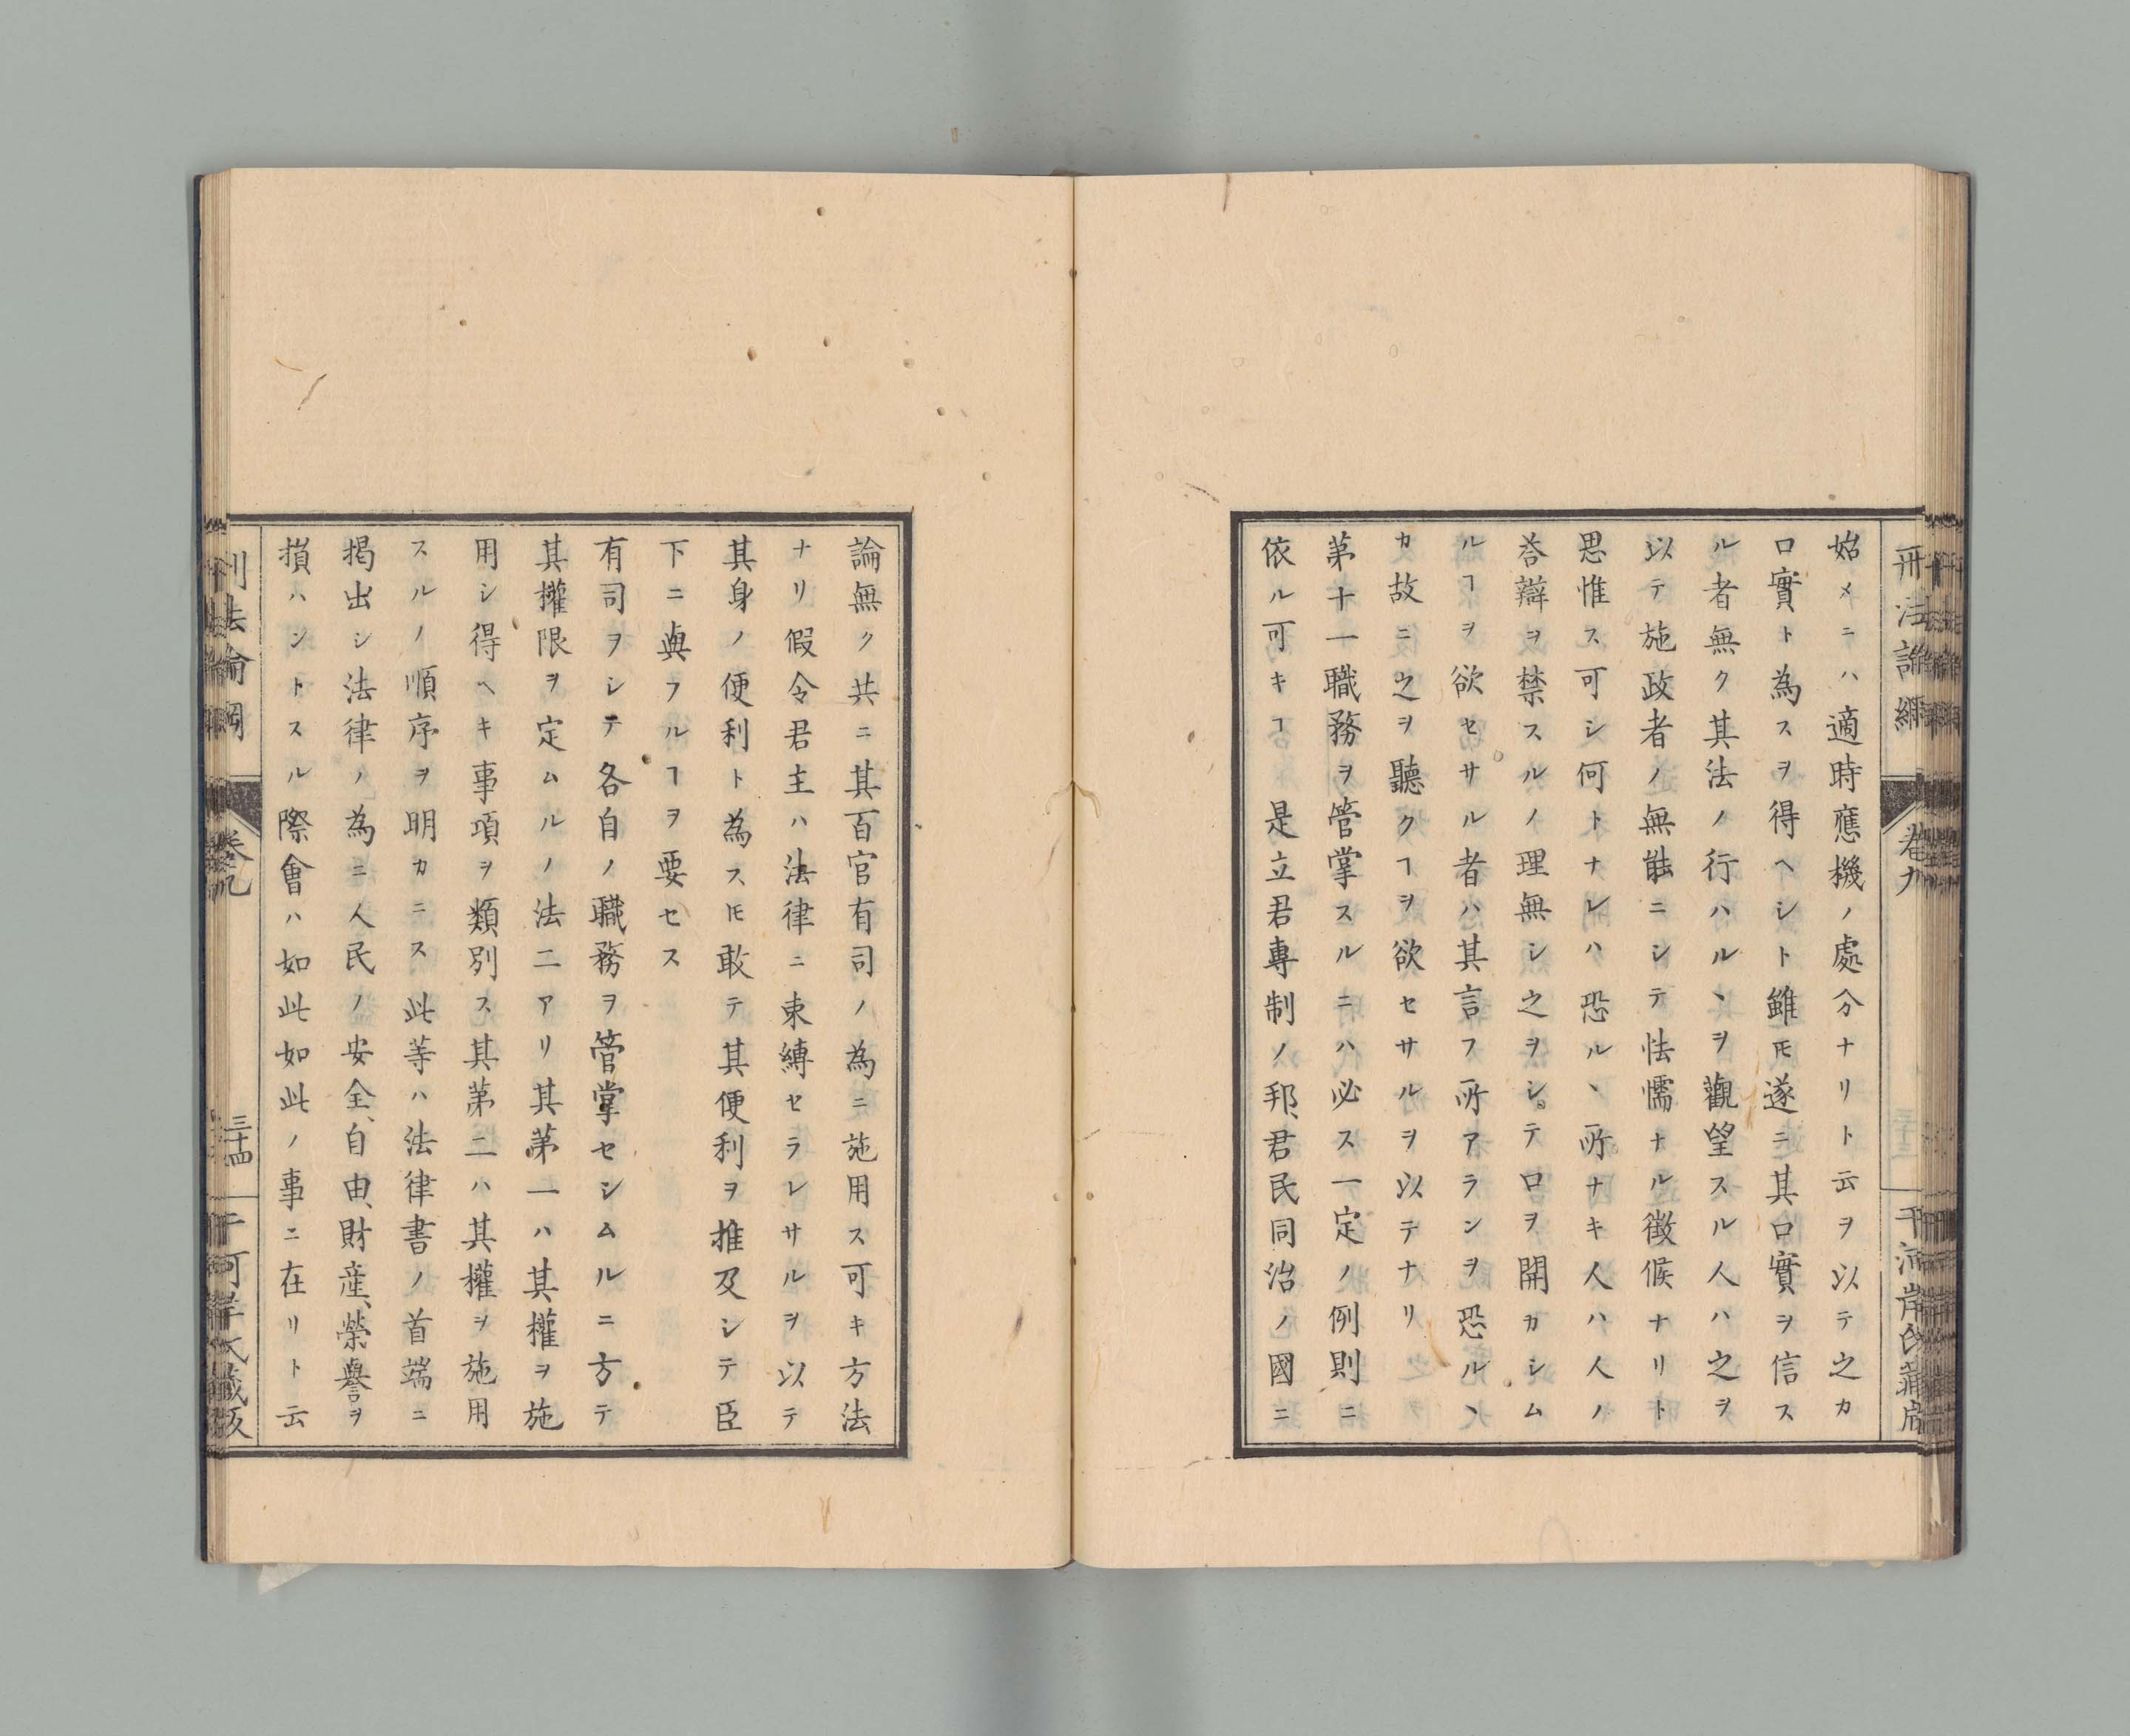 始メニハ適時應機ノ處分ナリト云ヲ以テ之カ
口實ト為スヲ得ヘシト雖𪜈遂ニ其口實ヲ信ス
ル者無ク其法ノ行ハルヽヲ觀望スル人ハ之ヲ
以テ施政者ノ無能ニシテ怯懦ナル徴候ナリト
思惟ス可シ何トナレハ恐ルヽ所ナキ人ハ人ノ
荅辯ヲ禁スルノ理無シ之ヲシテ口ヲ開カシム
ルヿヲ欲セサル者ハ其言フ所アランヲ恐ルヽ
カ故ニ之ヲ聽クヿヲ欲セサルヲ以テナリ
第十一職務ヲ管掌スルニハ必ス一定ノ例則ニ
依ル可キヿ　是立君專制ノ邦、君民同治ノ國ニ
論無ク共ニ其百官有司ノ為ニ施用ス可キ方法
ナリ假令君主ハ法律ニ束縛セラレサルヲ以テ
其身ノ便利ト為ス𪜈敢テ其便利ヲ推及シテ臣
下ニ與フルヿヲ要セス
有司ヲシテ各自ノ職務ヲ管掌セシムルニ方テ
其權限ヲ定ムルノ法二アリ其第一ハ其權ヲ施
用シ得ヘキ事項ヲ類別ス其第二ハ其權ヲ施用
スルノ順序ヲ明カニス此等ハ法律書ノ首端ニ
揭出シ法律ノ為ニ人民ノ安全、自由、財産、榮譽ヲ
損ハントスル際會ハ如此如此ノ事ニ在リト云
刑法論綱
卷九
三十四